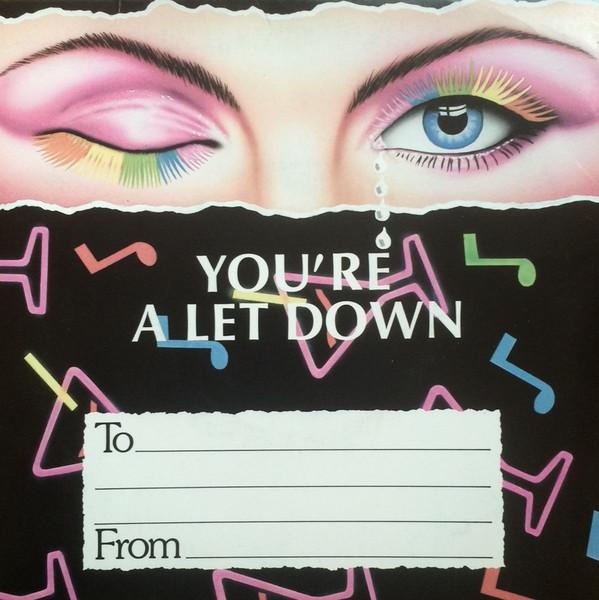 YOU'RE
A LET DOWN
To
From